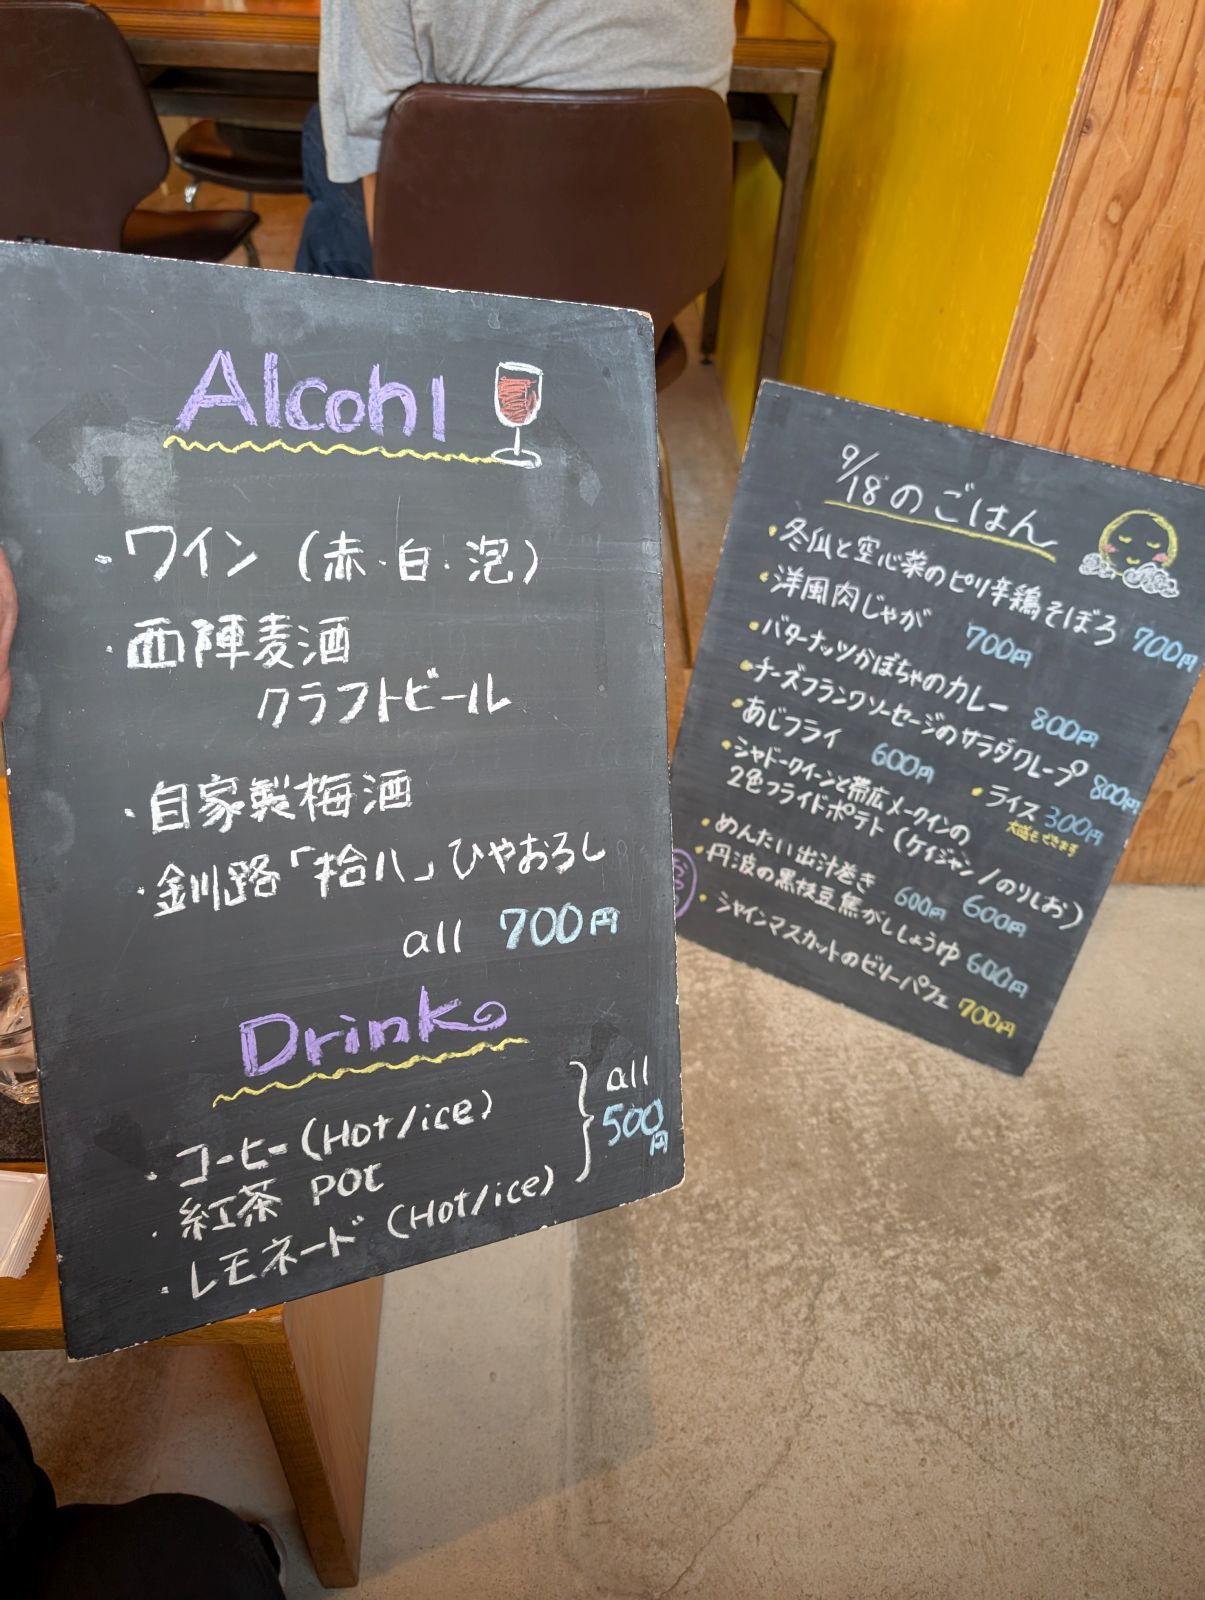 Alcohl
・ワイン（赤・白・泡）
・西陣麦酒
クラフトビール
・自家製梅酒
・釧路「拾八」ひやおろし
all 700円
Drink
・コーヒー(Hot/ice)
・紅茶 POT
・レモネード (Hot/ice)
all
500
円
9/18のごはん
・冬瓜と空心菜のピリ辛鶏そぼろ 700円
・洋風肉じゃが 700円
・バターナッツかぼちゃのカレー 800円
・チーズフランクソーセージのサラダクレープ 800円
・あじフライ 600円
・ライス 300円
大盛もできます
・シャドークイーンと帯広メークインの
2色フライドポテト（ケイジャン/のりしお） 600円
・めんたい出汁巻き 600円
・丹波の黒枝豆焦がししょうゆ 600円
・シャインマスカットのゼリーパフェ 700円